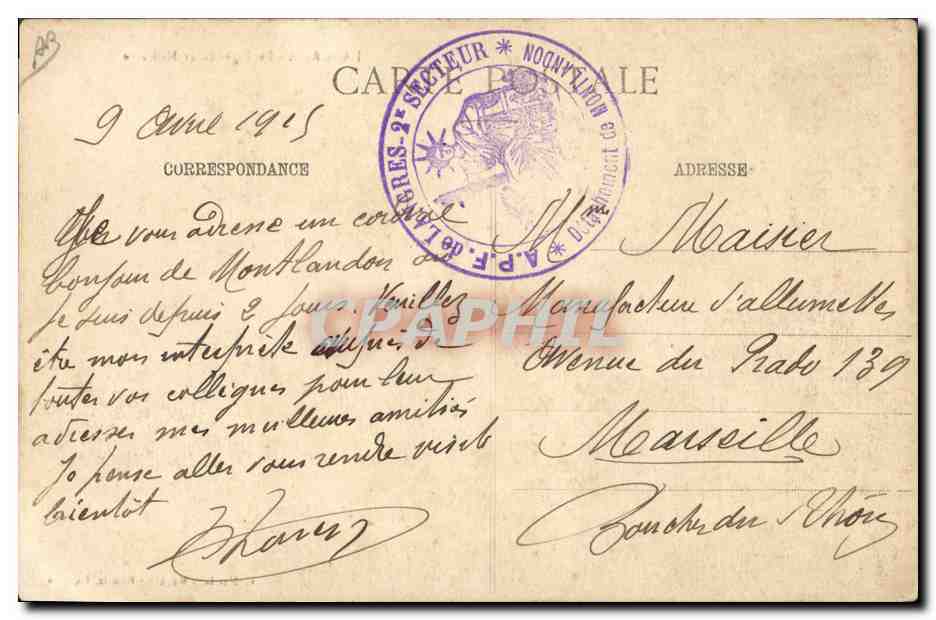 AB
CARTE POSTALE
A.P.F. de LANGRES - 2E SECTEUR * Détachement de MONTLANDON *
9 Avril 1915
CORRESPONDANCE
vous adresse un cordial
bonjour de Montlandon où
je suis depuis 2 jours. Veuillez
être mon interprète auprès de
toutes vos collègues pour leur
adresser mes meilleures amitiés
Je pense aller vous rendre visite
bientôt
ADRESSE
Mme Maisier
Manufacture d'allumettes
Avenue du Prado 139
Marseille
Bouches du Rhône
CPAPHIL